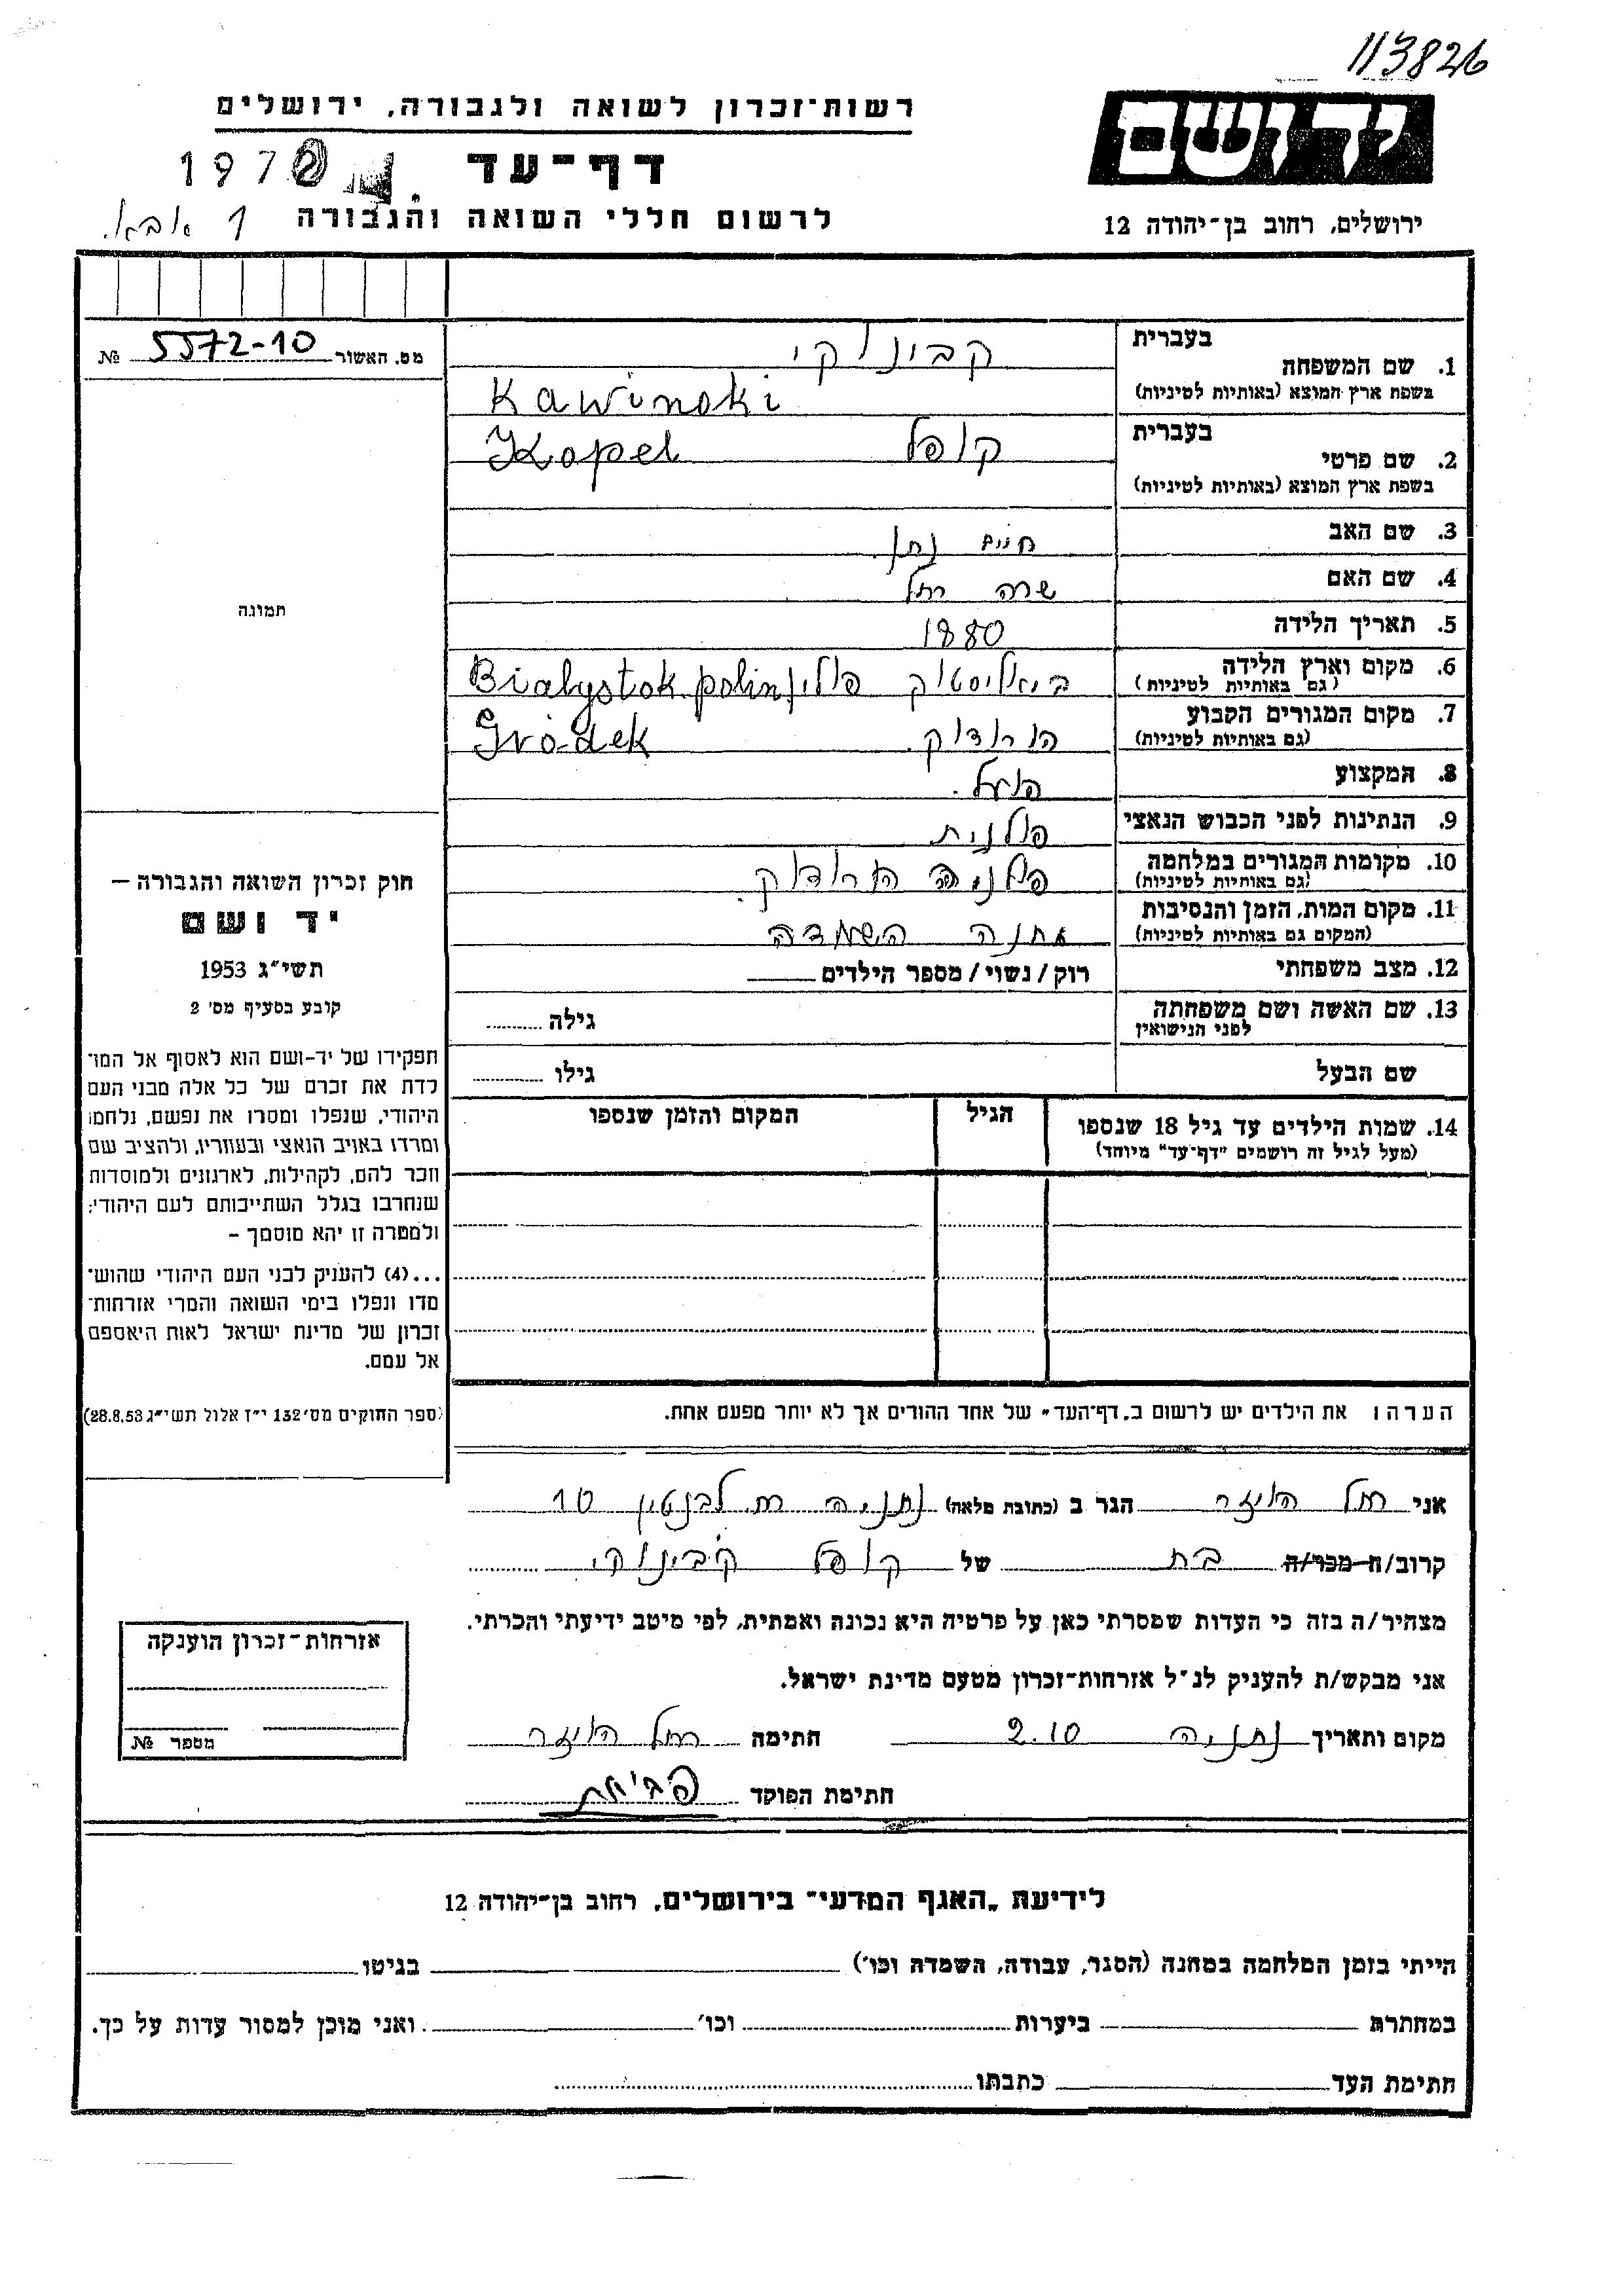 113826
רשות-זכרון לשואה ולגבורה, ירושלים
ידושם
דף-עד
197
לרשום חללי השואה והגבורה
ירושלים, רחוב בן-יהודה 12
מס. האשור 5572-10 №
בעברית
1. שם המשפחה
בשפת ארץ המוצא (באותיות לטיניות) Kawinski
בעברית
2. שם פרטי קופל Kopel
בשפת ארץ המוצא (באותיות לטיניות)
3. שם האב חיים נתן
4. שם האם שרה רחל
5. תאריך הלידה 1880
6. מקום וארץ הלידה ביאליסטוק פולין Bialystok polin
(גם באותיות לטיניות)
7. מקום המגורים הקבוע הורודוק. Gródek
(גם באותיות לטיניות)
8. המקצוע פועל.
9. הנתינות לפני הכבוש הנאצי פולנית
10. מקומות המגורים במלחמה פולניה הורודוק.
(גם באותיות לטיניות)
11. מקום המות, הזמן והנסיבות מחנה השמדה
(המקום גם באותיות לטיניות)
12. מצב משפחתי רוק / נשוי / מספר הילדים
13. שם האשה ושם משפחתה גילה
לפני הנישואין
שם הבעל גילו
14. שמות הילדים עד גיל 18 שנספו הגיל המקום והזמן שנספו
(מעל לגיל זה רושמים "דף-עד" מיוחד)
הערה: את הילדים יש לרשום ב„דף-העד" של אחד ההורים אך לא יותר מפעם אחת.
תמונה
חוק זכרון השואה והגבורה –
יד ושם
תשי"ג 1953
קובע בסעיף מס' 2
תפקידו של יד-ושם הוא לאסוף אל המו־
לדת את זכרם של כל אלה מבני העם
היהודי, שנפלו ומסרו את נפשם, נלחמו
ומרדו באויב הנאצי ובעוזריו, ולהציב שם
וזכר להם, לקהילות, לארגונים ולמוסדות
שנחרבו בגלל השתייכותם לעם היהודי;
ולמטרה זו יהא מוסמך –
...(4) להעניק לבני העם היהודי שהוש־
מדו ונפלו בימי השואה והמרי אזרחות־
זכרון של מדינת ישראל לאות היאספם
אל עמם.
(ספר החוקים מס' 132 י"ז אלול תשי"ג 28.8.53)
אני רחל הגר ב (כתובת מלאה) נתניה רח לבנטין 10
קרוב/ה מכר/ה בת של קופל
מצהיר/ה בזה כי העדות שמסרתי כאן על פרטיה היא נכונה ואמתית, לפי מיטב ידיעתי והכרתי.
אני מבקש/ת להעניק לנ"ל אזרחות-זכרון מטעם מדינת ישראל.
מקום ותאריך נתניה 2.10 חתימה רחל
חתימת הפוקד
אזרחות-זכרון הוענקה
מספר №
לידיעת „האגף המדעי" בירושלים, רחוב בן-יהודה 12
הייתי בזמן המלחמה במחנה (הסגר, עבודה, השמדה וכו') בגיטו
במחתרת ביערות וכו' ואני מוכן למסור עדות על כך.
חתימת העד כתבתו